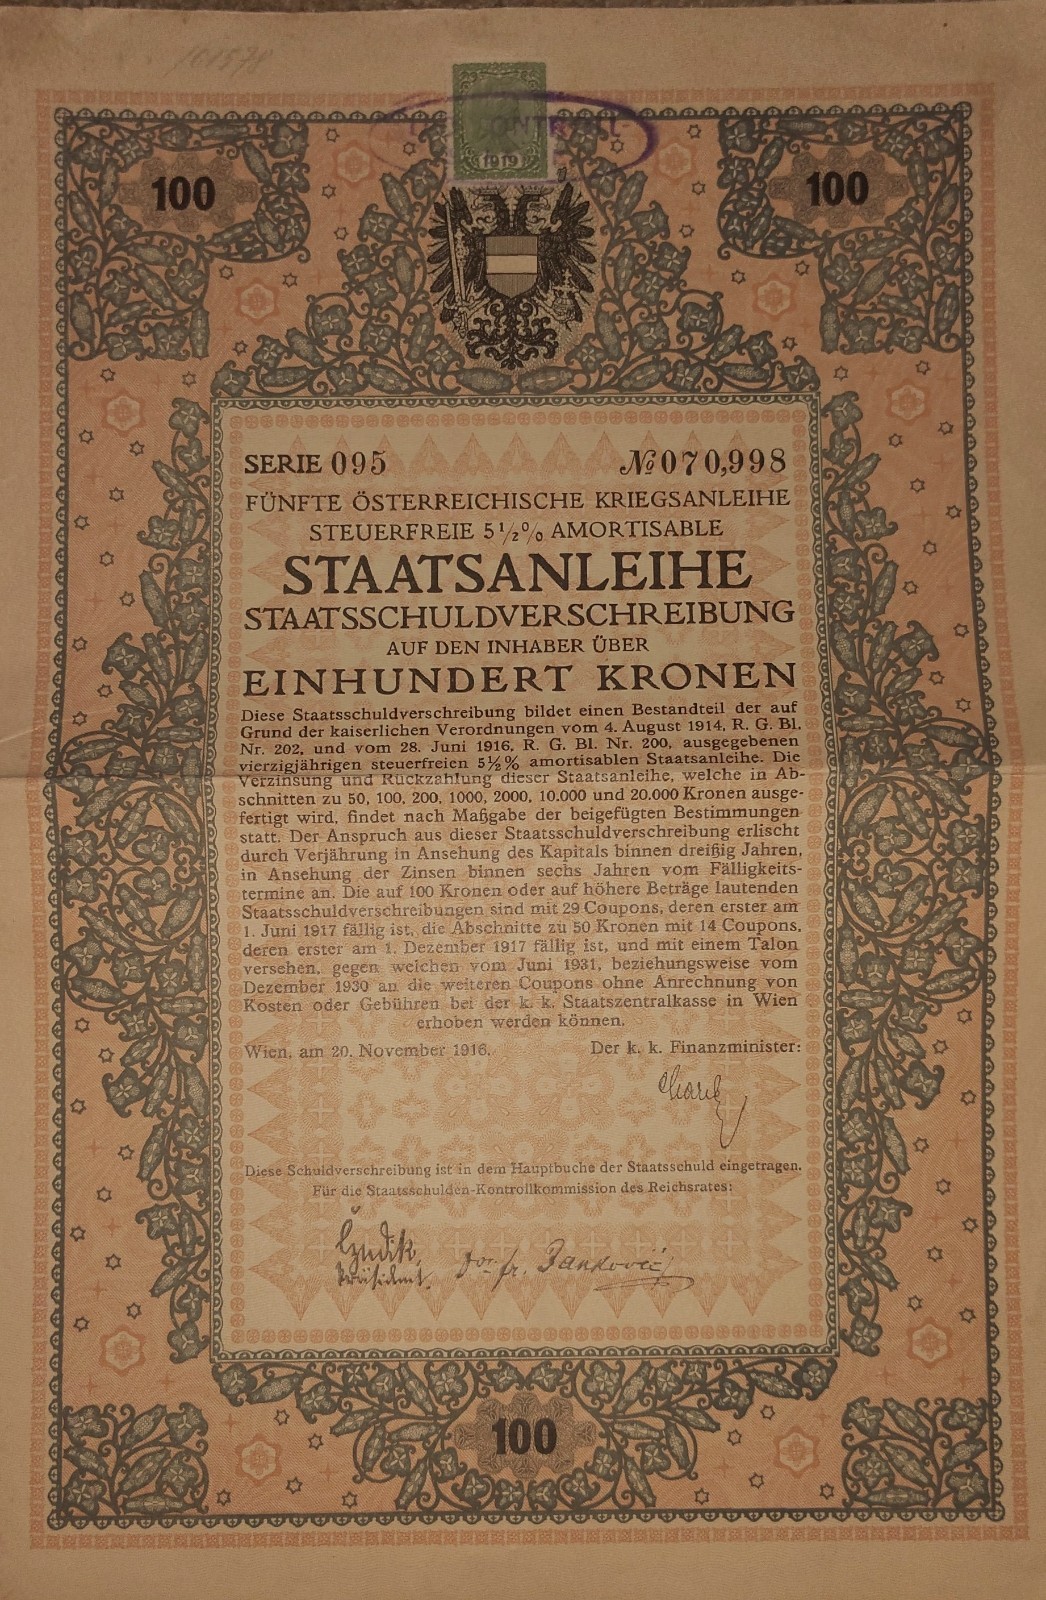 161578
1919
100
100
SERIE 095
№ 070,998
FÜNFTE ÖSTERREICHISCHE KRIEGSANLEIHE
STEUERFREIE 5½% AMORTISABLE
STAATSANLEIHE
STAATSSCHULDVERSCHREIBUNG
AUF DEN INHABER ÜBER
EINHUNDERT KRONEN
Diese Staatsschuldverschreibung bildet einen Bestandteil der auf
Grund der kaiserlichen Verordnungen vom 4. August 1914, R. G. Bl.
Nr. 202, und vom 28. Juni 1916, R. G. Bl. Nr. 200, ausgegebenen
vierzigjährigen steuerfreien 5½% amortisablen Staatsanleihe. Die
Verzinsung und Rückzahlung dieser Staatsanleihe, welche in Ab-
schnitten zu 50, 100, 200, 1000, 2000, 10.000 und 20.000 Kronen ausge-
fertigt wird, findet nach Maßgabe der beigefügten Bestimmungen
statt. Der Anspruch aus dieser Staatsschuldverschreibung erlischt
durch Verjährung in Ansehung des Kapitals binnen dreißig Jahren,
in Ansehung der Zinsen binnen sechs Jahren vom Fälligkeits-
termine an. Die auf 100 Kronen oder auf höhere Beträge lautenden
Staatsschuldverschreibungen sind mit 29 Coupons, deren erster am
1. Juni 1917 fällig ist, die Abschnitte zu 50 Kronen mit 14 Coupons,
deren erster am 1. Dezember 1917 fällig ist, und mit einem Talon
versehen, gegen welchen vom Juni 1931, beziehungsweise vom
Dezember 1930 an die weiteren Coupons ohne Anrechnung von
Kosten oder Gebühren bei der k. k. Staatszentralkasse in Wien
erhoben werden können.
Wien, am 20. November 1916.
Der k. k. Finanzminister:
Diese Schuldverschreibung ist in dem Hauptbuche der Staatsschuld eingetragen.
Für die Staatsschulden-Kontrollkommission des Reichsrates:
Präsident.
100